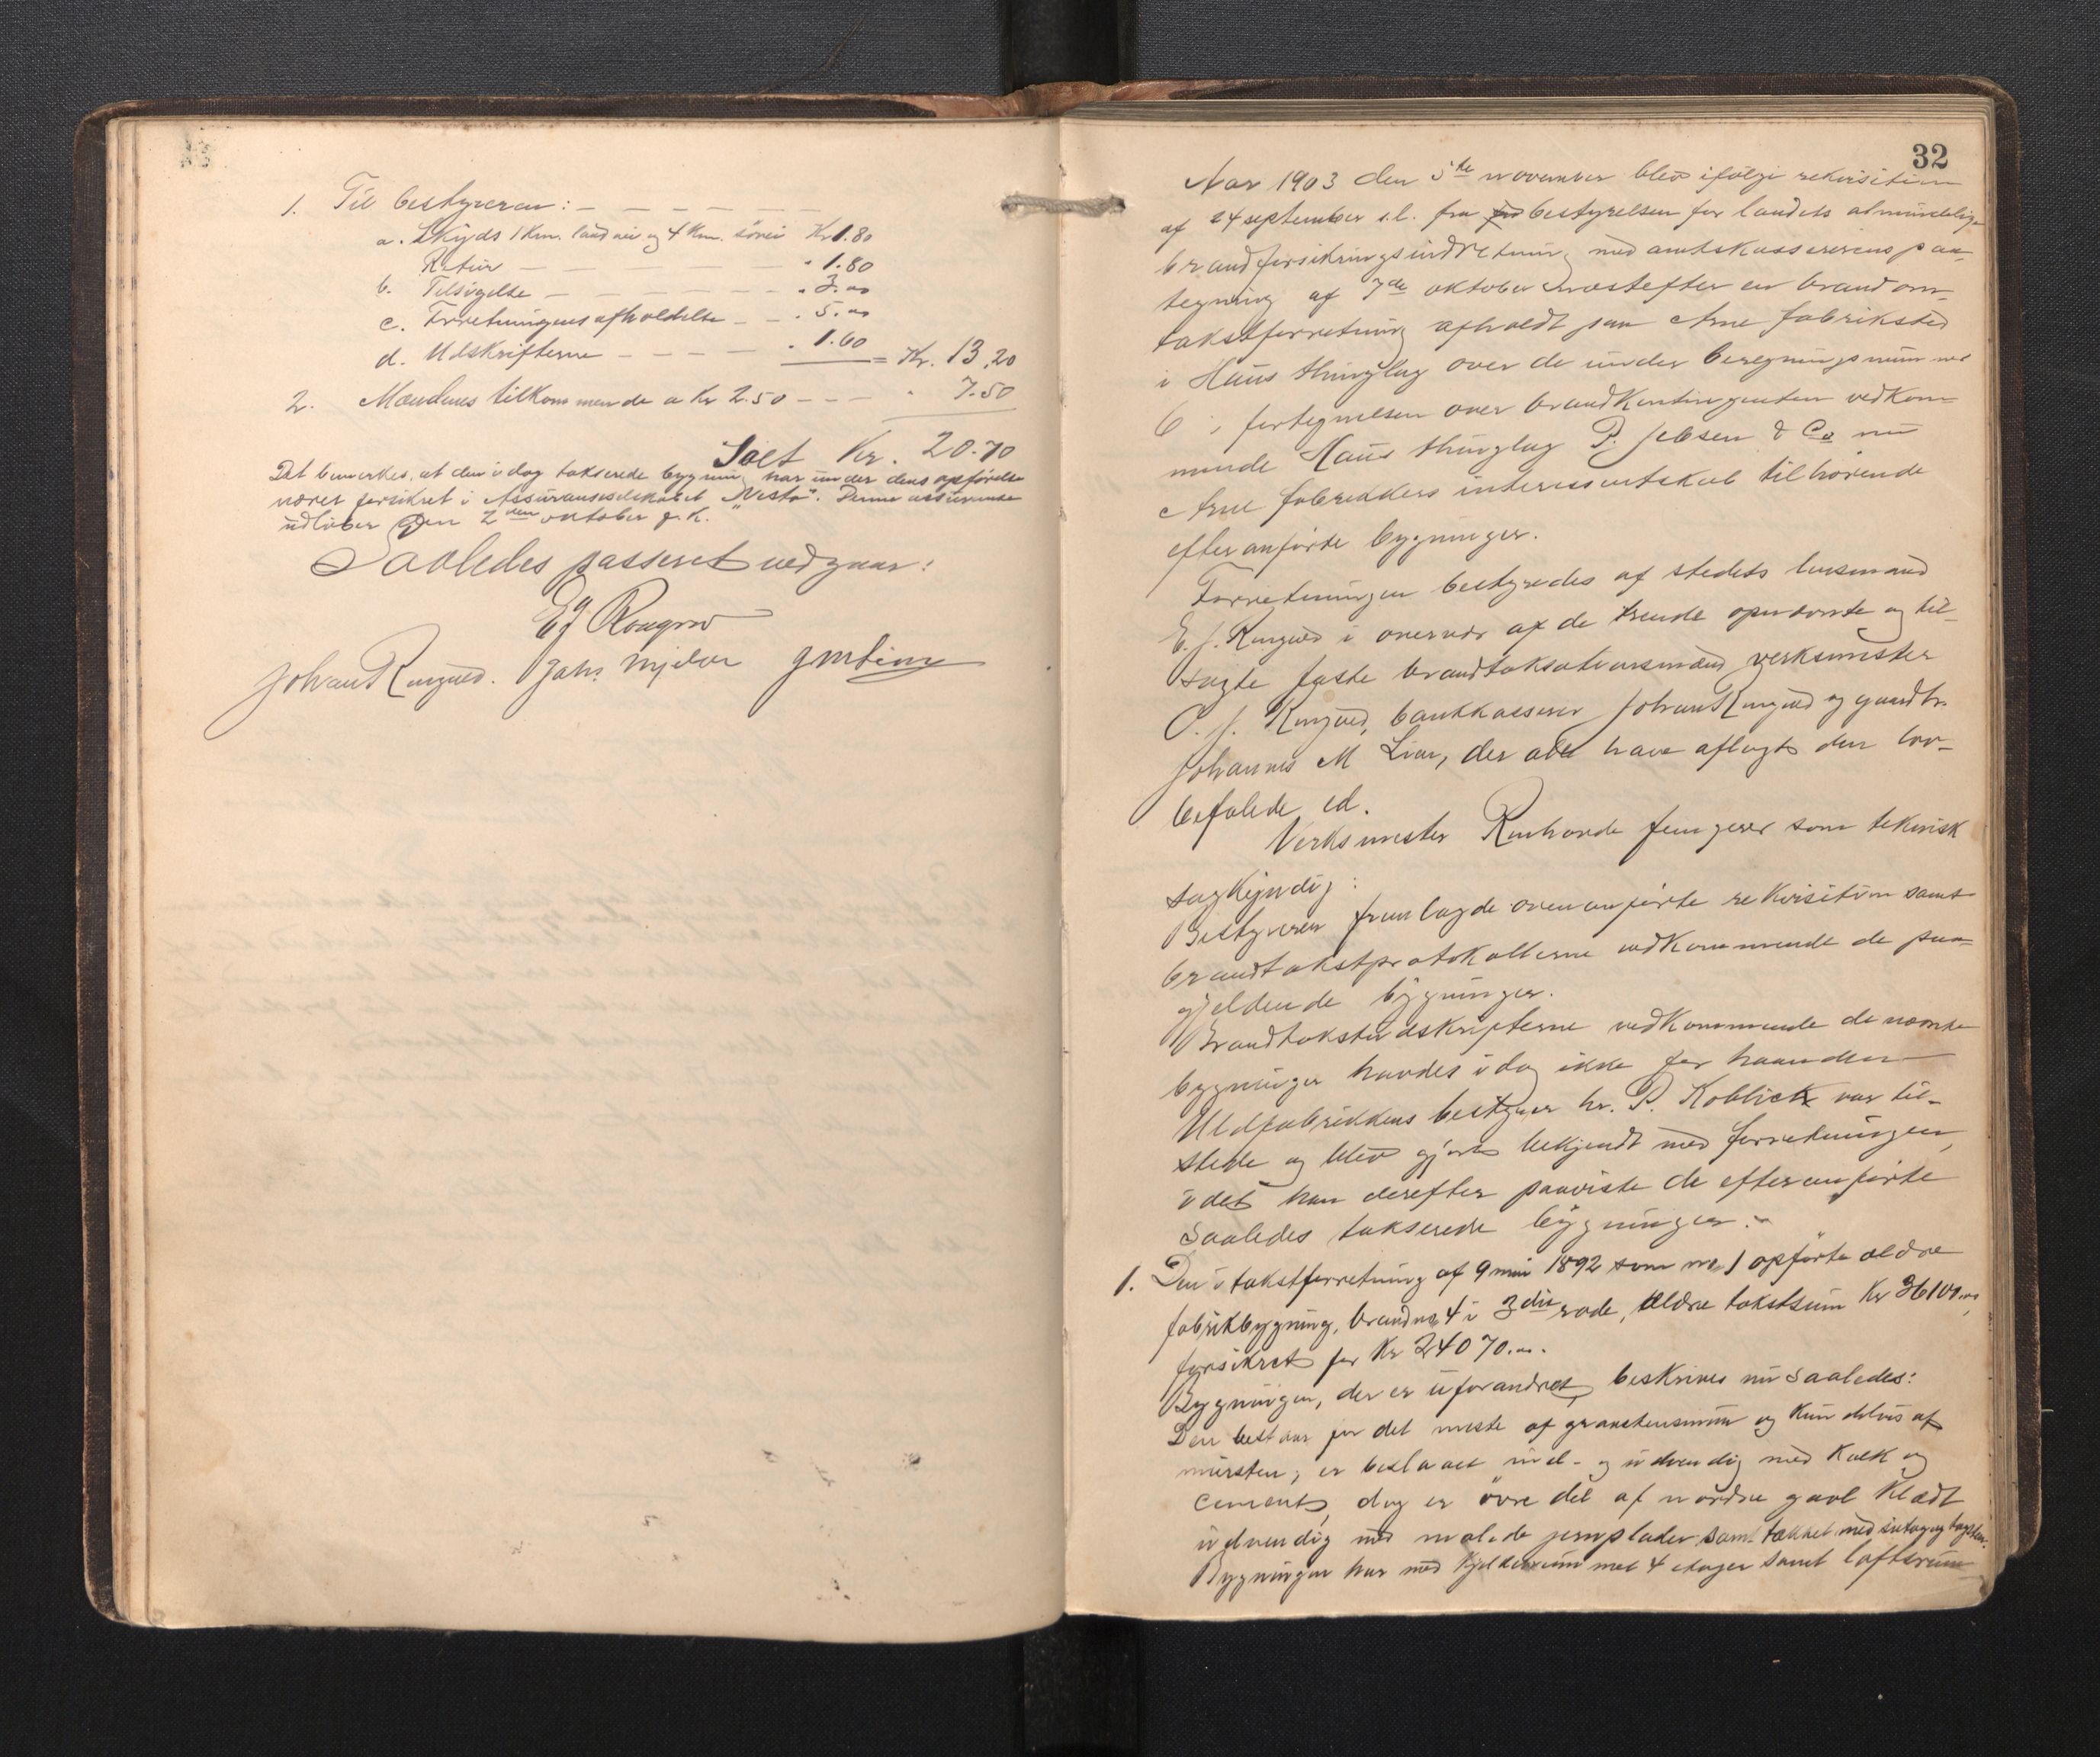 1. Til bestyreren: — — — — — —
a. Skyds 1 Km. landvei og 4 Km. søvei Kr 1.80
Retur — — — — " 1.80
b. Tilsigelse — — — — " 3.00
c. Forretningens afholdelse — — " 5.00
d. Udskrifterne — — — — " 1.60 = Kr. 13,20
2. Mændenes tilkommende a Kr 2.50 — — — " 7.50
Salt Kr. 20.70
Det bemerkes, at den i dag takserede bygning har under dens opførelse
været forsikret i Assuranseselskabet "Norske". Denne assuranse
udløber den 2den oktober d.k.
Saaledes passeret vedgaar:
EJ Rongved
Johan Rongved. Johs Mjelde
32
Aar 1903 den 5te november blev ifølge rekvisition
af 24 september s.l. fra bestyrelsen for landets almindelige
brandforsikringsindretning med amtskassererens paa-
tegning af 7de oktober næstefter en brandom-
takstforretning afholdt paa Arne fabriksted
i Haus thinglag over de under beregningsnummer
6 i fortegnelsen over brandkontingenten vedkom-
mende Haus thinglag P. Jebsen & Co nu
Arne fabrikkers interessentskab tilhørende
efteranførte bygninger.
Forretningen bestyredes af stedets lensmand
E. J. Rongved i overvær af de trende opnævnte og til-
sagte faste brandtakstationsmænd verksmester
O. J. Rongved, bankkasserer Johan Rongved og gaardbr.
Johannes M Lien, der alle have aflagt den lov-
befalede ed.
Verksmester fungerer som teknisk
sagkyndig:
Bestyreren fremlagde ovenanførte rekvisition samt
brandtakstprotokollerne vedkommende de paa-
gjeldende bygninger.
Brandtakstudskrifterne vedkommende de nævnte
bygninger havdes i dag ikke for haanden
Uldfabrikkens bestyrer hr. P. Koblick var til-
stede og blev gjort bekjendt med forretningen,
idet han derefter paaviste de efteranførte
saaledes takserede bygninger: —
1. Den i takstforretning af 9 mai 1892 som no. 1 opførte ældre
fabrikbygning, brandno. 4 i 3die rode, ældre takstsum Kr 36100.00,
forsikret for Kr 24070.00.
Bygningen, der er uforandret, beskrives nu saaledes:
Den bestaar for det meste af graastensmur og kun delvis af
mursten, er beslaaet ind- og udvendig med kalk og
cement, dog er øvre del af nordre gavl klædt
udvendig med malede jernplader samt tækket med
Bygningen har med kjelderrum met 4 etager samt loftsrum